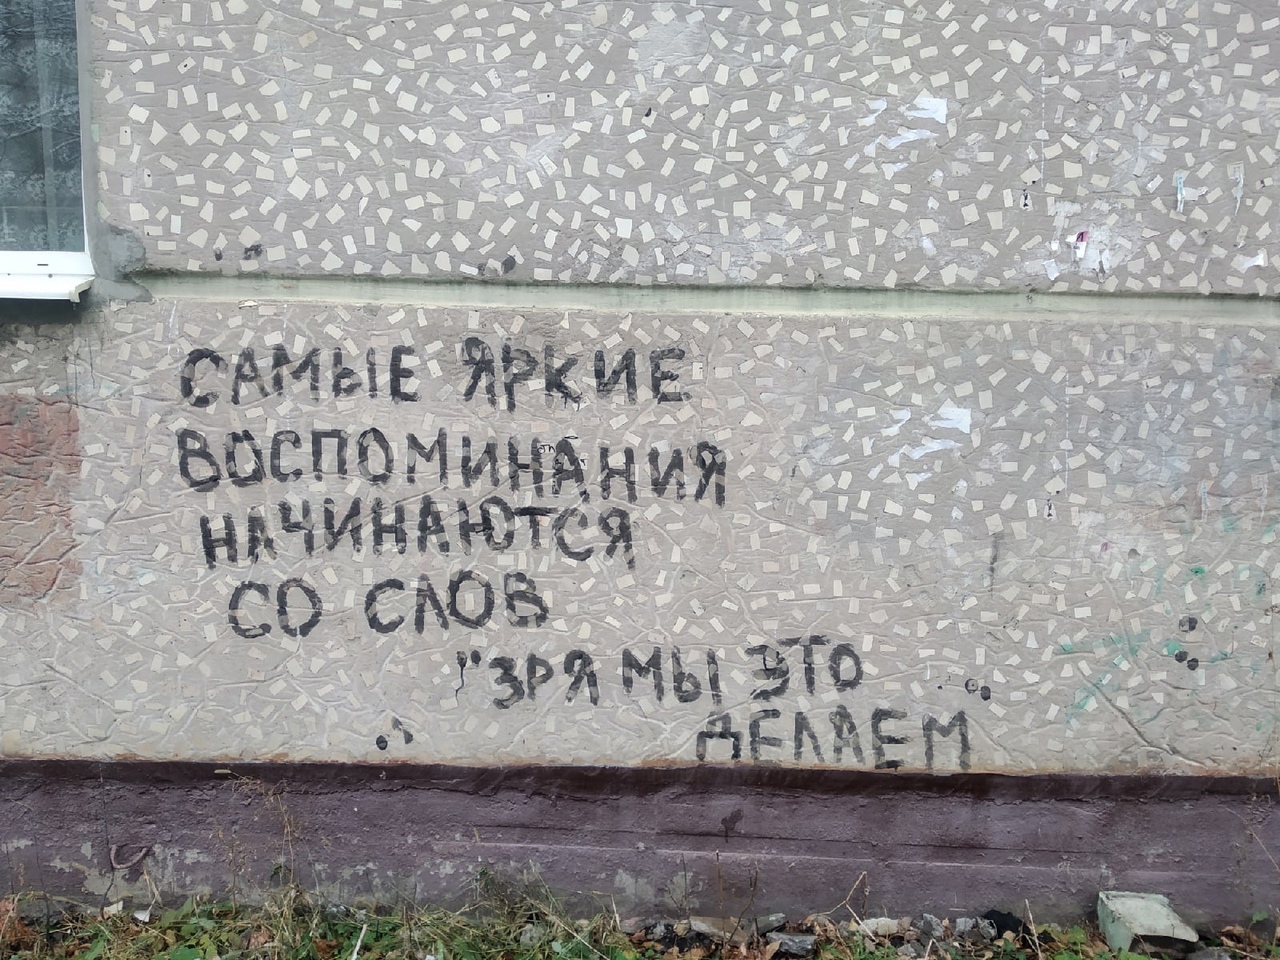 САМЫЕ ЯРКИЕ
ВОСПОМИНАНИЯ
НАЧИНАЮТСЯ
СО СЛОВ
"ЗРЯ МЫ ЭТО
ДЕЛАЕМ